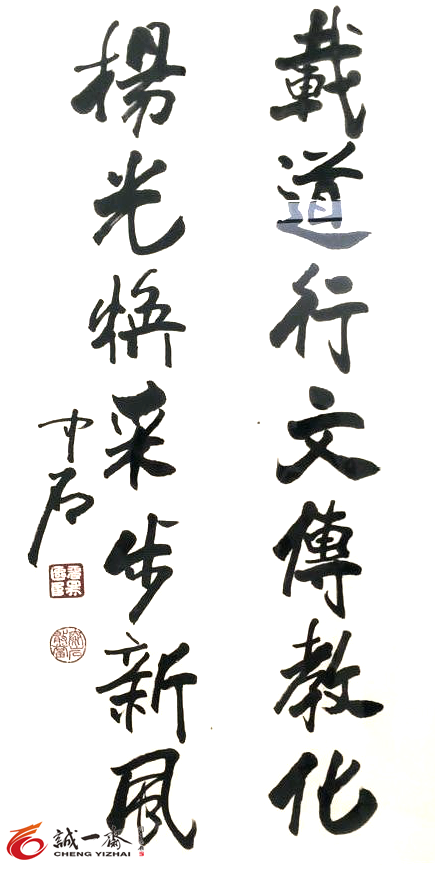 載道行文傳教化
楊光采步新風
中石
誠一齋
CHENG YIZHAI